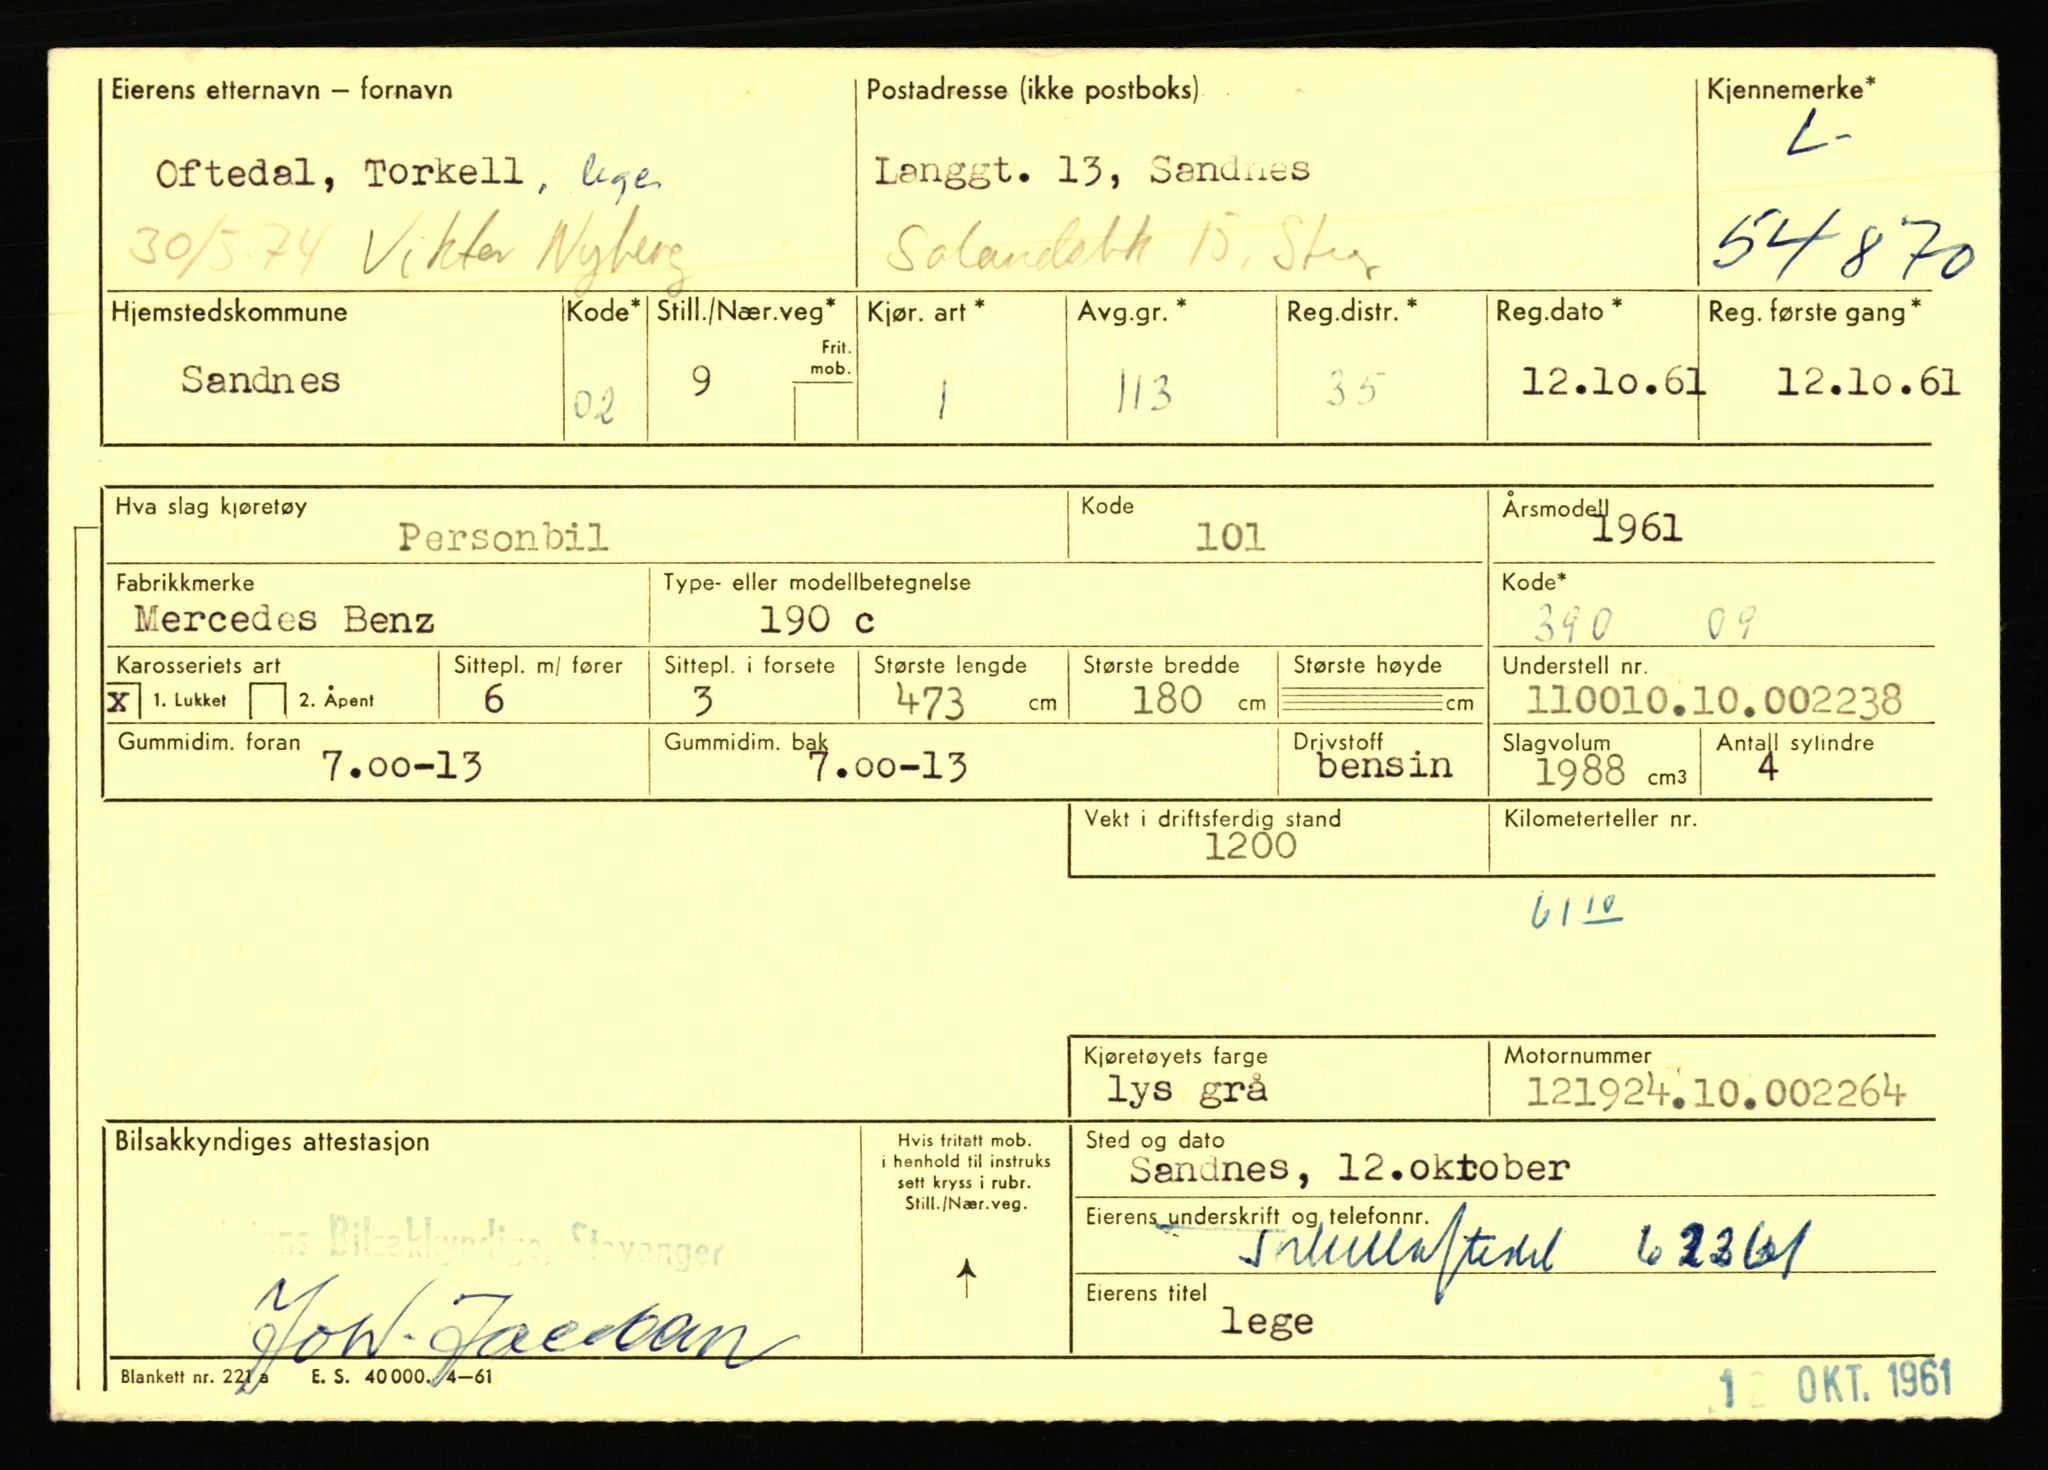 Eierens etternavn – fornavn
Postadresse (ikke postboks)
Kjennemerke*
L-
Oftedal, Torkell, lege
Langgt. 13, Sandnes
30/5-74 Viktor Nyberg
Solandsbk 15, Stvgr
54870
Hjemstedskommune
Kode*
Still./Nær.veg*
Frit. mob.
Kjør. art*
Avg.gr.*
Reg.distr.*
Reg.dato*
Reg. første gang*
Sandnes
02
9
1
113
35
12.10.61
12.10.61
Hva slag kjøretøy
Personbil
Kode
101
Årsmodell
1961
Fabrikkmerke
Mercedes Benz
Type- eller modellbetegnelse
190 c
Kode*
390 09
Karosseriets art
X 1. Lukket 2. Åpent
Sittepl. m/ fører
6
Sittepl. i forsete
3
Største lengde
473 cm
Største bredde
180 cm
Største høyde
cm
Understell nr.
110010.10.002238
Gummidim. foran
7.00-13
Gummidim. bak
7.00-13
Drivstoff
bensin
Slagvolum
1988 cm3
Antall sylindre
4
Vekt i driftsferdig stand
1200
Kilometerteller nr.
61 10
Kjøretøyets farge
lys grå
Motornummer
121924.10.002264
Bilsakkyndiges attestasjon
Hvis fritatt mob.
i henhold til instruks
sett kryss i rubr.
Still./Nær.veg.
Sted og dato
Sandnes, 12.oktober
Eierens underskrift og telefonnr.
Torkell Oftedal
Bilsakkyndige, Stavanger
Eierens titel
lege
Blankett nr. 221 a E. S. 40 000. 4–61
12 OKT. 1961